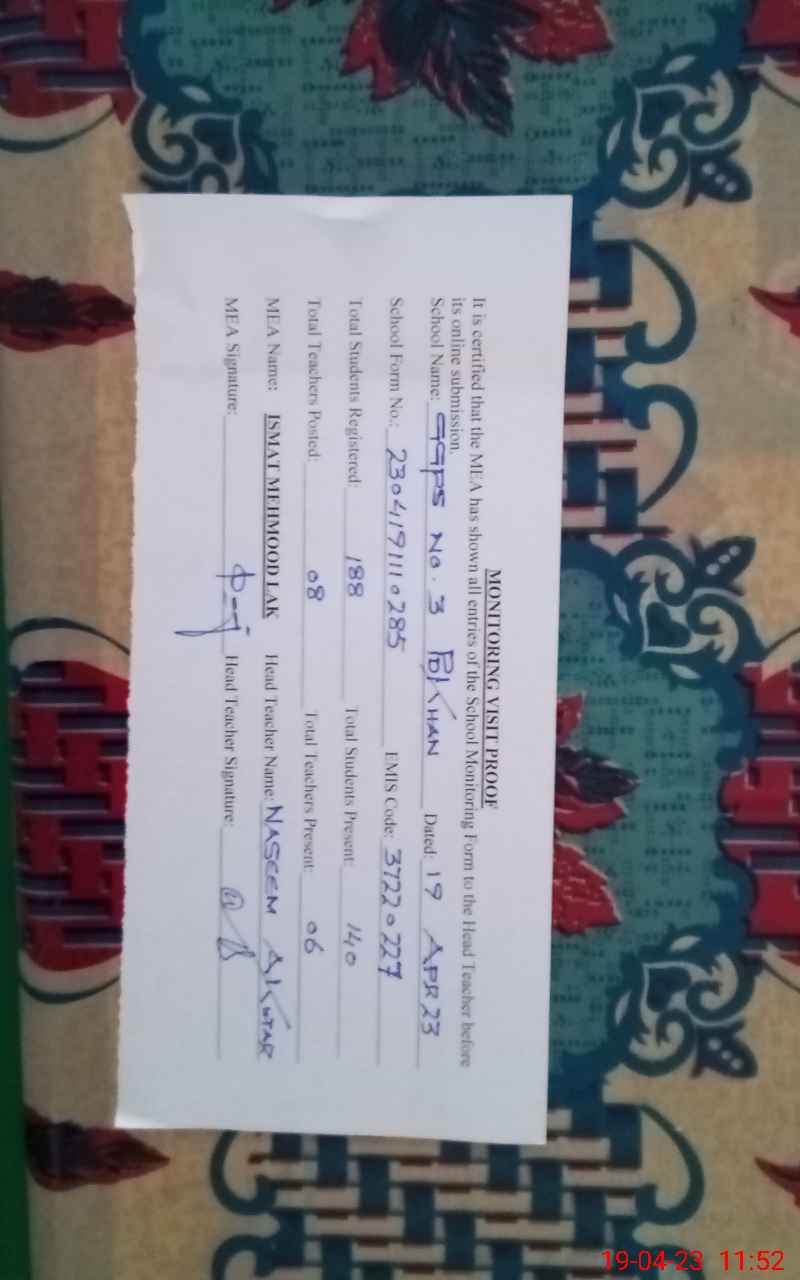 MONITORING VISIT PROOF
It is certified that the MEA has shown all entries of the School Monitoring Form to the Head Teacher before
its online submission.
School Name: GGPS No. 3 PDKHAN Dated: 19 APR 23
School Form No.: 2304191110285 EMIS Code: 37220227
Total Students Registered: 188 Total Students Present: 140
Total Teachers Posted: 08 Total Teachers Present: 06
MEA Name: ISMAT MEHMOOD LAK Head Teacher Name: NASEEM AKHTAR
MEA Signature: Head Teacher Signature:
19-04-23 11:52